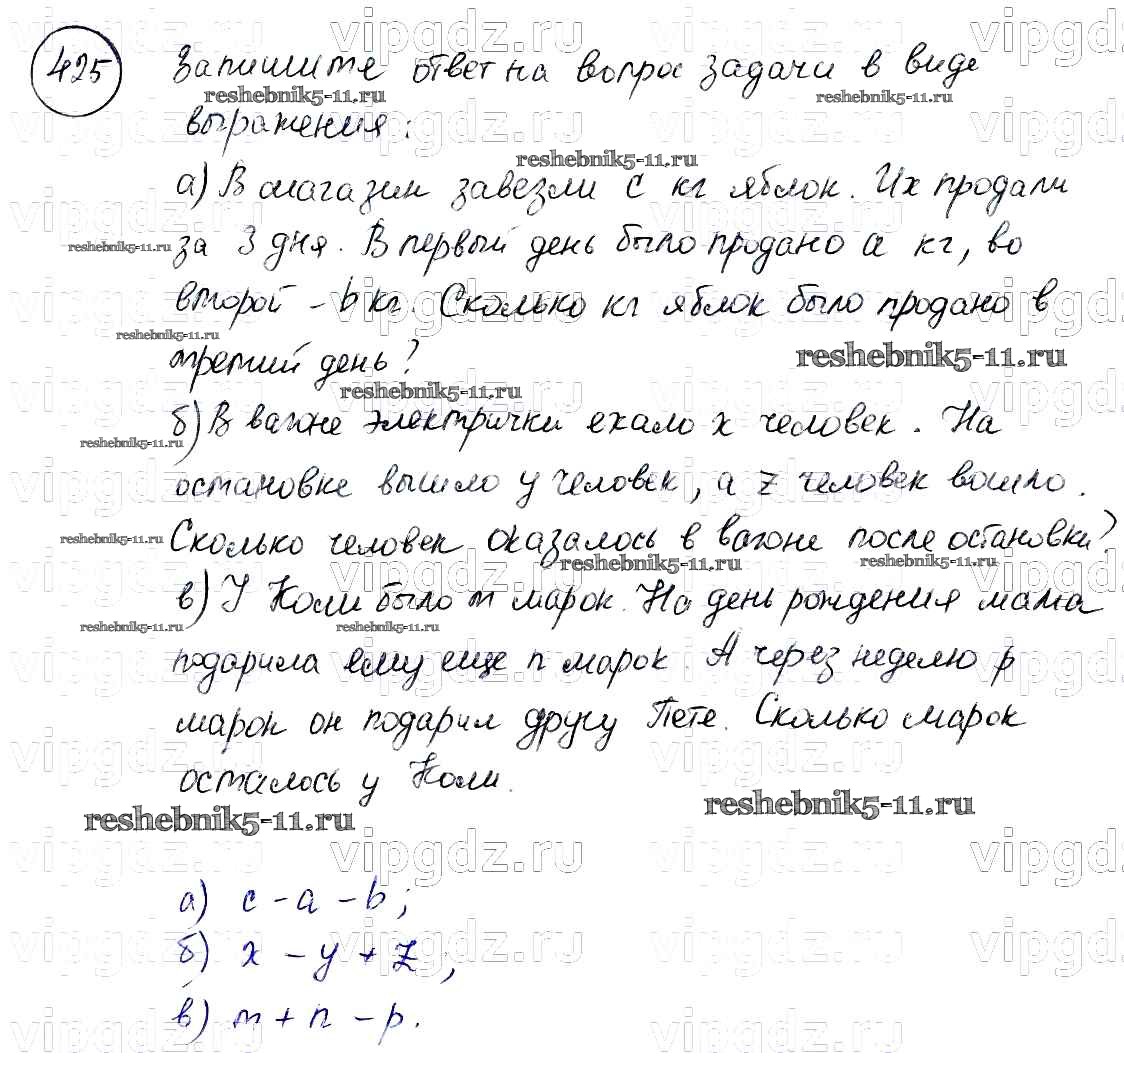 425 Запишите ответ на вопрос задачи в виде
выражения:
а) В магазин завезли с кг яблок. Их продали
за 3 дня. В первый день было продано a кг, во
второй - b кг. Сколько кг яблок было продано в
третий день?
б) В вагоне электрички ехало x человек. На
остановке вышло y человек, а z человек вошло.
Сколько человек оказалось в вагоне после остановки?
в) У Коли было m марок. На день рождения мама
подарила ему еще n марок. А через неделю p
марок он подарил другу Пете. Сколько марок
осталось у Коли.
а) c - a - b;
б) x - y + z;
в) m + n - p.
vipgdz.ru
reshebnik5-11.ru